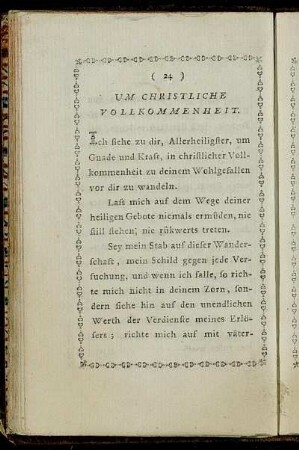 ( 24 )
UM CHRISTLICHE
VOLLKOMMENHEIT.
Ich flehe zu dir, Allerheiligster, um
Gnade und Kraft, in christlicher Voll-
kommenheit zu deinem Wohlgefallen
vor dir zu wandeln.
Laß mich auf dem Wege deiner
heiligen Gebote niemals ermüden, nie
still stehen, nie rükwerts treten.
Sey mein Stab auf dieser Wander-
schaft, mein Schild gegen jede Ver-
suchung, und wenn ich falle, so rich-
te mich nicht in deinem Zorn, son-
dern siehe hin auf den unendlichen
Werth der Verdienste meines Erlö-
sers; richte mich auf mit väter-